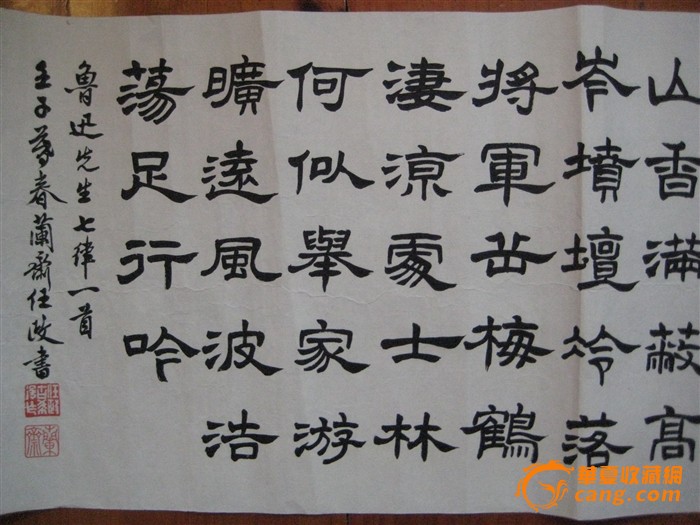 山香滿蔽高
岑墳壇冷落
將軍岳梅鶴
淒涼處士林
何似舉家游
曠遠風波浩
蕩足行吟
魯迅先生七律一首
壬子暮春蘭齋任政書
華夏收藏網
cang.com